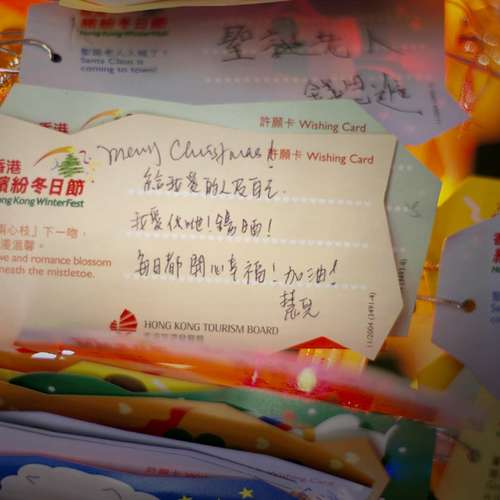 繽紛冬日節
Hong Kong WinterFest
聖誕老人入城了!
Santa Claus is
coming to town!
聖誕老人
許願卡 Wishing Card
香港
許願卡 Wishing Card
香港
繽紛冬日節
Hong Kong WinterFest
Merry Christmas!
給我愛的人及自己
我愛
心枝」下一吻,
溫馨。
ve and romance blossom
neath the mistletoe.
每日都開心幸福!加油!
慧兒
HONG KONG TOURISM BOARD
香港旅遊發展局
許願卡